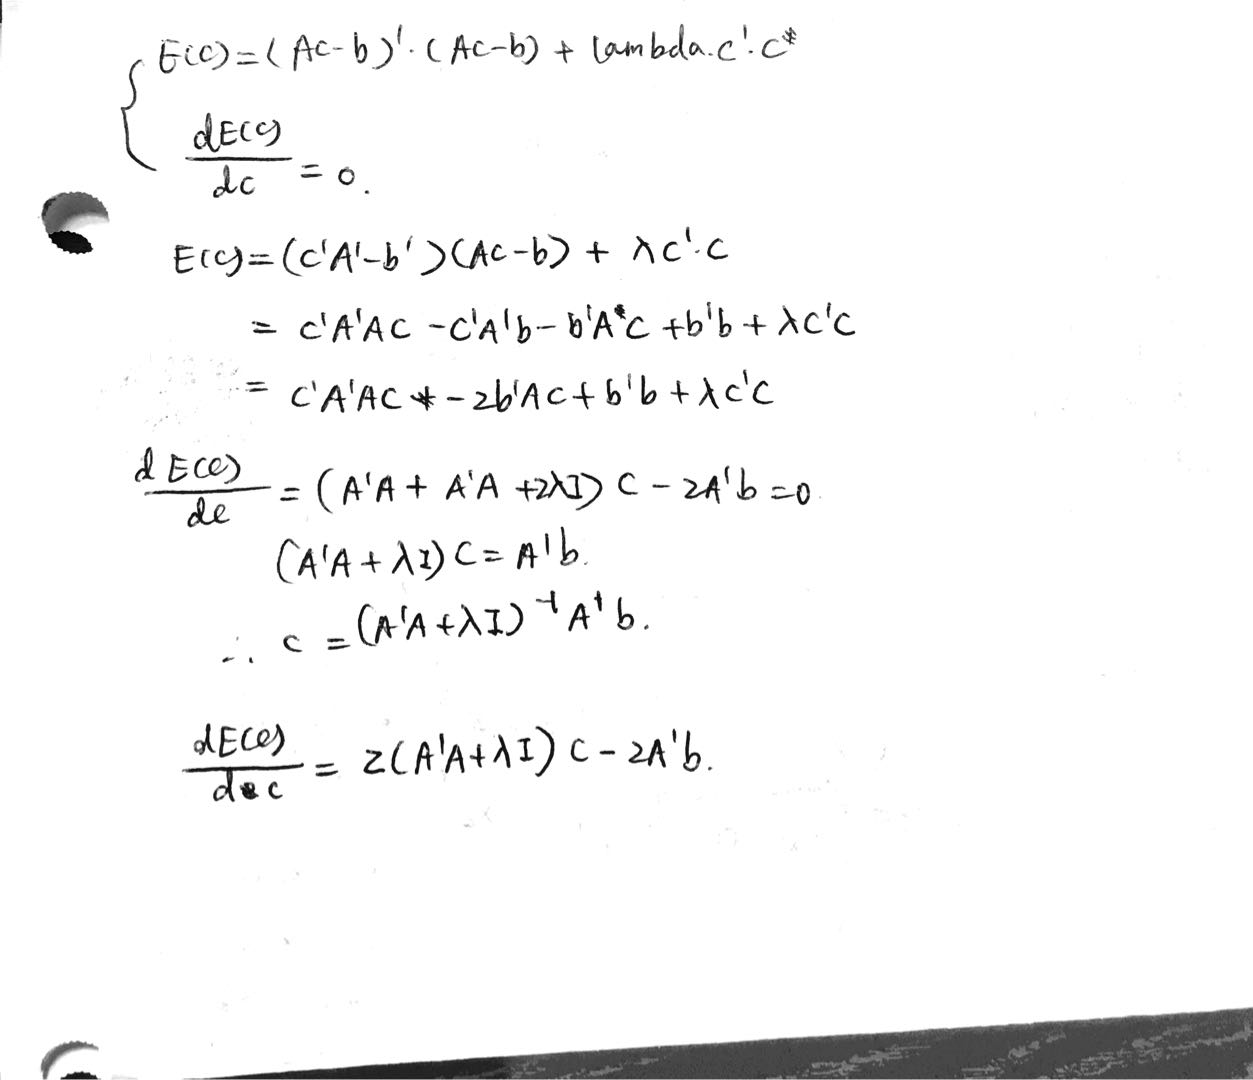 E(c) = (Ac-b)'·(Ac-b) + lambda·c'·c*
dE(c)/dc = 0.
E(c) = (c'A'-b')(Ac-b) + λc'·c
= c'A'Ac - c'A'b - b'A*c + b'b + λc'c
= c'A'Ac * - 2b'Ac + b'b + λc'c
dE(c)/dc = (A'A + A'A + 2λI) c - 2A'b = 0.
(A'A + λI) c = A'b.
∴ c = (A'A + λI)⁻¹ A'b.
dE(c)/dc = 2(A'A + λI) c - 2A'b.